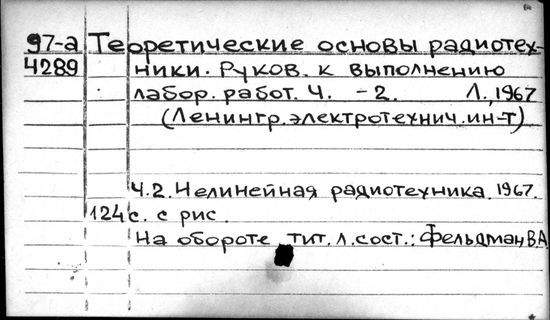 97-а Теоретические основы радиотех-
4289 ники. Руков. к выполнению
лабор. работ. Ч. -2. Л., 1967
(Ленингр. электротехнич. ин-т)
Ч.2. Нелинейная радиотехника. 1967.
124 с. с рис.
На обороте тит. л. сост.: Фельдман В.А